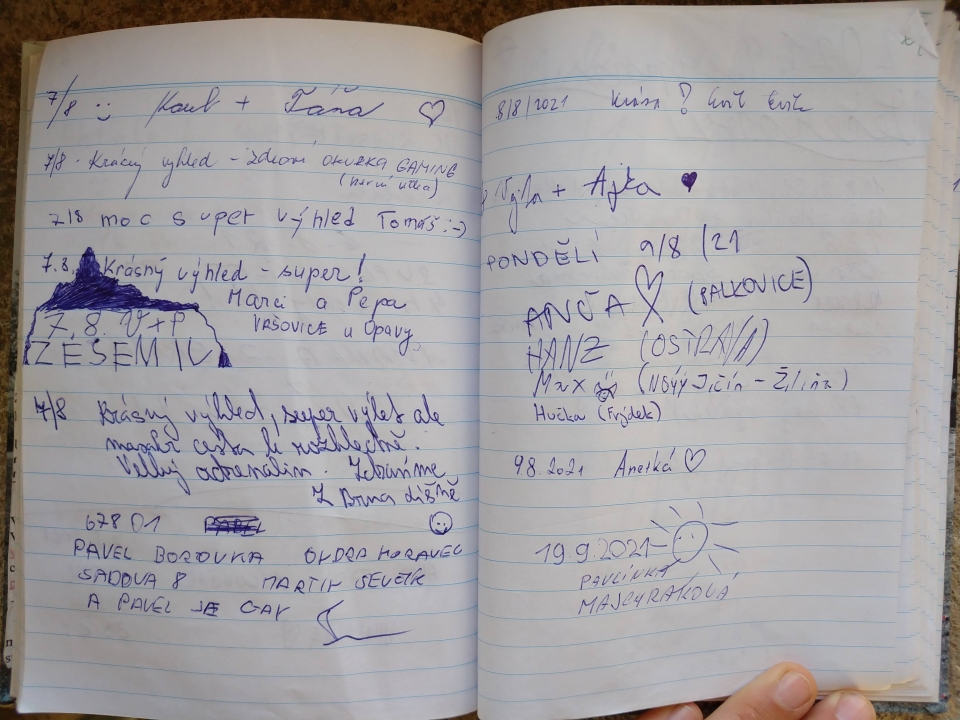 7/8 :) Karel + Táňa ♡
7/8. Krásný výhled - Zdraví OKURKA GAMING
7/8 moc super výhled Tomáš :-)
7.8. Krásný výhled - super!
Marci a Pepa
VRŠOVICE u Opavy
7.8. V+P
ZÉSEM IV
7/8 Krásný výhled, super výlet ale
masakr cesta k rozhledně.
Velký adrenalin. Zdravíme
Z Brna
678 01
PAVEL BOROVKA ONDRA MORAVEC
SADOVA 8 MARTIN SEVCIK
A PAVEL JE GAY
8/8/2021 Krása!
+ Ajka ♥
PONDĚLÍ 9/8/21
ANČA ♡ (PALKOVICE)
HANZ (OSTRAVA)
Max (Nový Jičín - Žilina)
Hučka (Frýdek)
9.8.2021 Anetka ♡
19.9.2021
PAVLÍNKA
MAJCHRÁKOVÁ